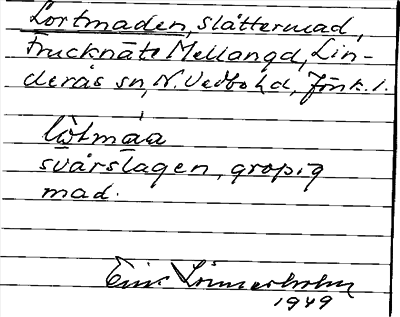 Lortmaden, slåttermad,
Frucknäte Mellangd, Lin-
derås sn, N. Vedbo hd, Jönk. l.
lòtmaa
svårslagen, gropig
mad.
Erik Linnerholm
1949